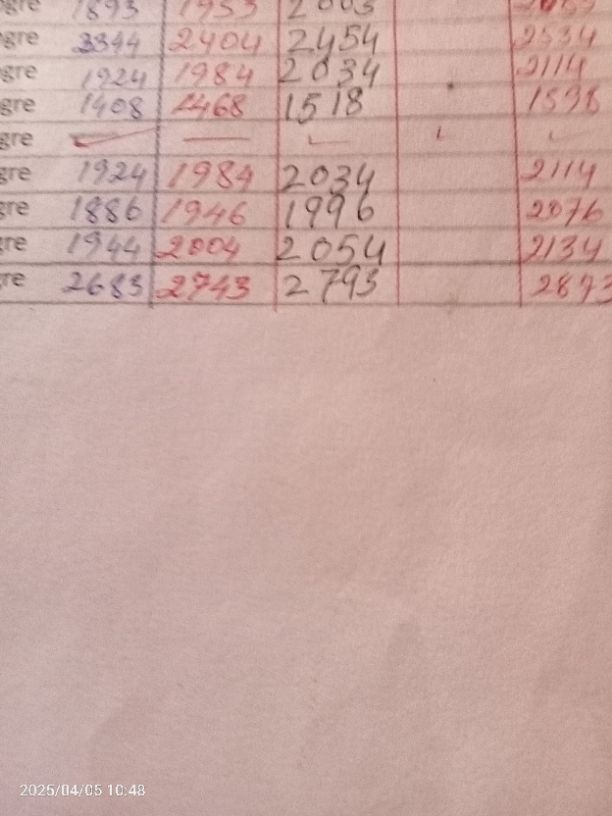 gre 1893 1953 2003
gre 2344 2404 2454 2534
gre 1924 1984 2034 2114
gre 1408 1468 1518 1598
gre
gre 1924 1984 2034 2114
gre 1886 1946 1996 2076
gre 1944 2004 2054 2134
re 2683 2743 2793 2873
2025/04/05 10:48